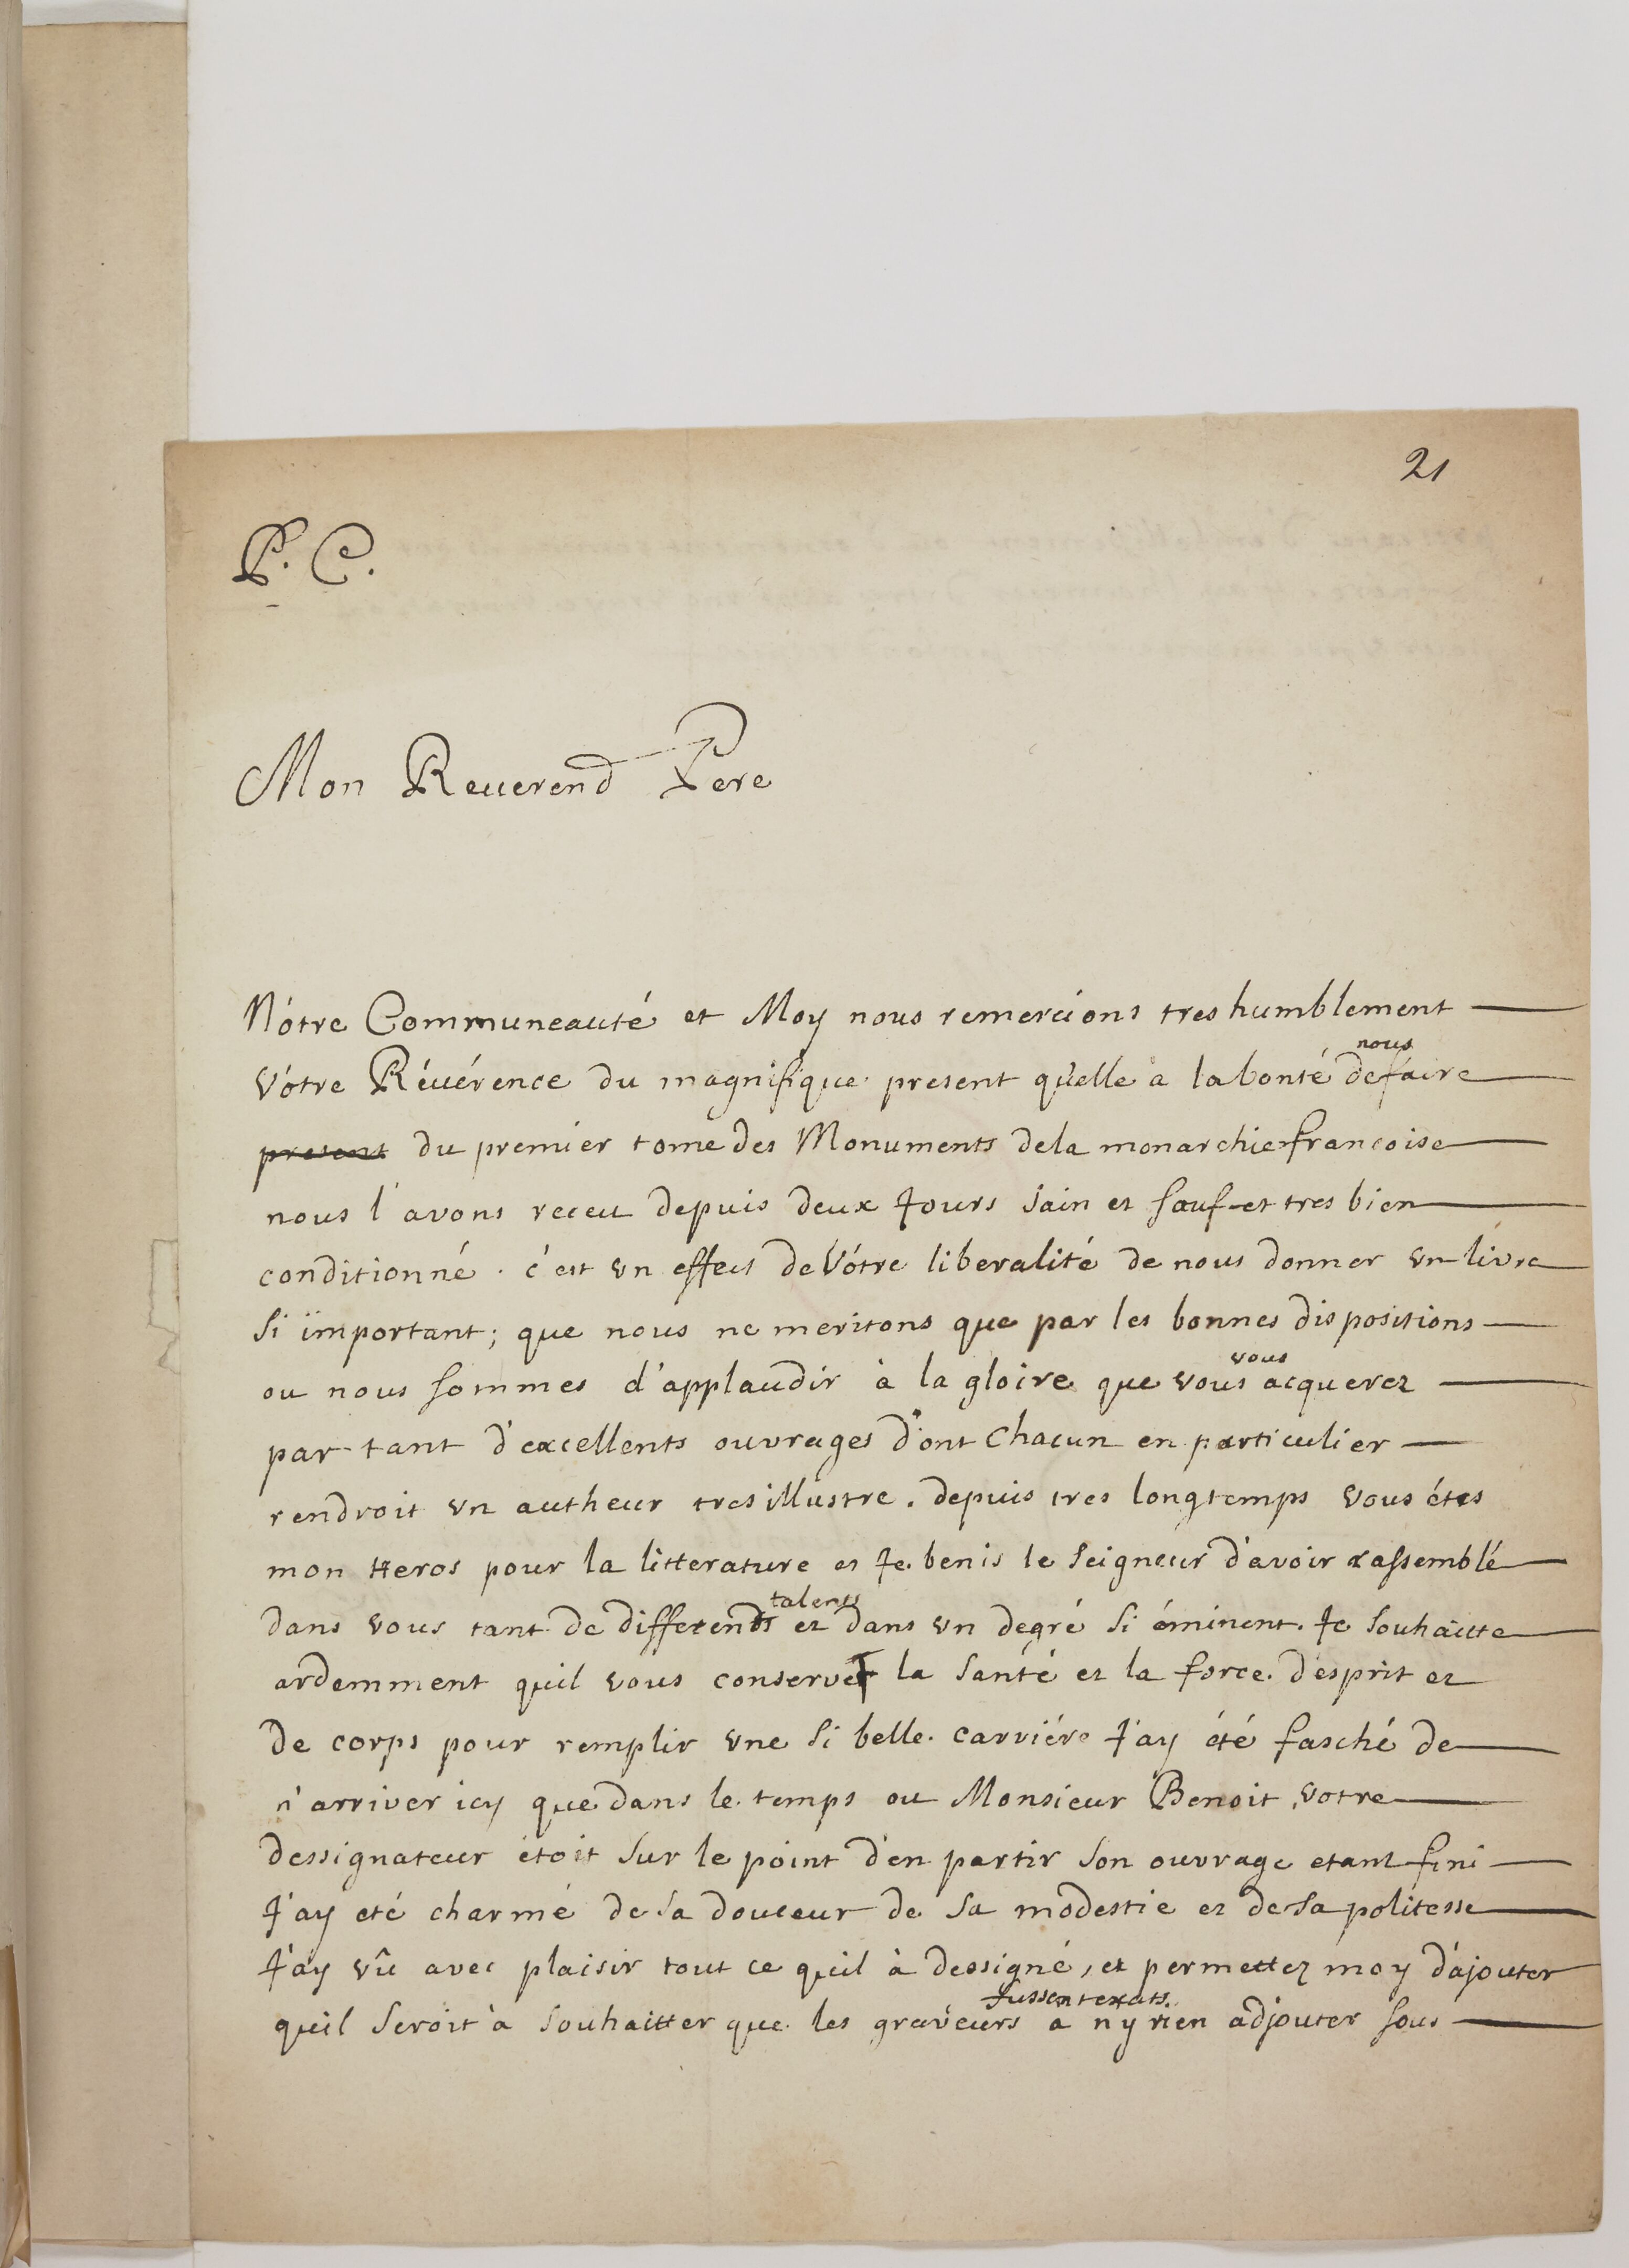 21
P. C.
Mon Reuerend Pere
Nótre Communeauté et Moy nous remercions tres humblement
Vótre Réuérence du magnifique present qu'elle a la bonté de nous faire
present du premier tome des Monuments de la monarchie francoise
nous l'avons receu depuis deux Jours sain et sauf et tres bien
conditionné. c'est vn effect de Vótre liberalité de nous donner vn livre
si important; que nous ne meritons que par les bonnes dispositions
ou nous sommes d'applaudir à la gloire que vous vous acquerez
par tant d'excellents ouvrages d'ont chacun en particulier
rendroit vn autheur tres illustre. depuis tres longtemps vous étes
mon Heros pour la litterature et Je benis le seigneur d'avoir rassemblé
dans vous tant de differents talents et dans vn degré si éminent. Je souhaitte
ardemment quil vous conserve la santé et la force d'esprit et
de corps pour remplir vne si belle carriére J'ay été fasché de
n'arriver icy que dans le temps ou Monsieur Benoit votre
dessignateur étoit sur le point d'en partir son ouvrage etant fini
J'ay eté charmé de sa douceur de sa modestie et de sa politesse
J'ay vû avec plaisir tout ce quil à dessigné, et permettez moy d'ajouter
quil seroit à souhaitter que les graveurs fussent exats a n y rien adjouter sous